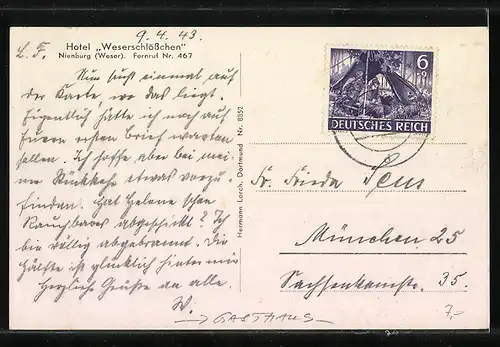 9. 4. 43.
Hotel „Weserschlößchen"
Nienburg (Weser). Fernruf Nr. 467
L. F.
Nun sucht einmal auf
der Karte wo das liegt.
Eigentlich hätte ich noch auf
Euren ersten Brief warten
sollen. Ich hoffe aber bei mei-
ner Rückkehr etwas vorzu-
finden. Hat Helene schon
Rauchbares abgeschickt? Ich
bin völlig abgebrannt. Die
Hälfte ist glücklich hinter mir
Herzliche Grüße an alle.
W.
→ GASTHAUS
Hermann Lorch, Dortmund Nr. 8852
6
DEUTSCHES REICH
Fr. Frieda
München 25
Sachsenkamstr. 35.
7,-